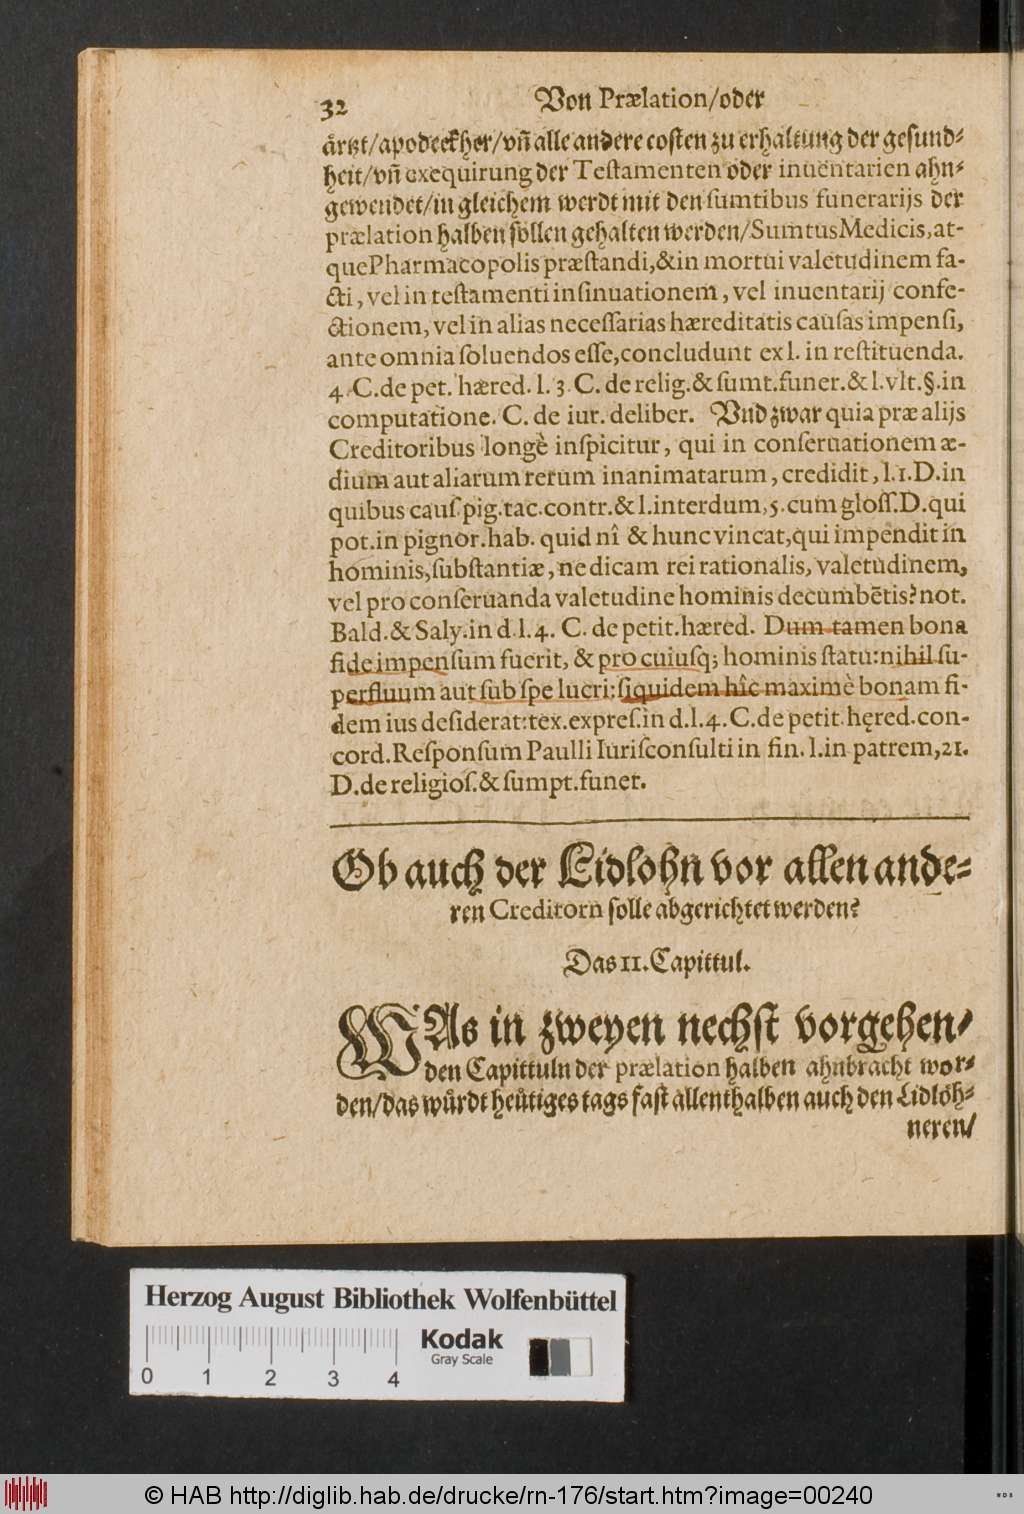 32 Von Prælation/oder
ärtzt/apodeckher/vñ alle andere costen zu erhaltung der gesund⸗
heit/vñ exequirung der Testamenten oder inuentarien ahn⸗
gewendet/in gleichem werdt mit den sumtibus funerarijs der
prælation halben sollen gehalten werden/Sumtus Medicis, at-
que Pharmacopolis præstandi, & in mortui valetudinem fa-
cti, vel in testamenti insinuationem, vel inuentarij confe-
ctionem, vel in alias necessarias hæreditatis causas impensi,
ante omnia soluendos esse, concludunt ex l. in restituenda.
4. C. de pet. hæred. l. 3. C. de relig. & sumt. funer. & l. vlt. §. in
computatione. C. de iur. deliber. Vnd zwar quia præ alijs
Creditoribus longè inspicitur, qui in conseruationem æ-
dium aut aliarum rerum inanimatarum, credidit, l. 1. D. in
quibus caus. pig. tac. contr. & l. interdum, 5. cum gloss. D. qui
pot. in pignor. hab. quid nî & hunc vincat, qui impendit in
hominis, substantiæ, ne dicam rei rationalis, valetudinem,
vel pro conseruanda valetudine hominis decumbētis? not.
Bald. & Saly. in d. l. 4. C. de petit. hæred. Dum tamen bona
fide impensum fuerit, & pro cuiusq; hominis statu: nihil su-
perfluum aut sub spe lucri: siquidem hîc maximè bonam fi-
dem ius desiderat: tex. expres. in d. l. 4. C. de petit. hęred. con-
cord. Responsum Paulli Iurisconsulti in fin. l. in patrem, 21.
D. de religios. & sumpt. funer.
Ob auch der Lidlohn vor allen ande⸗
ren Creditorn solle abgerichtet werden?
Das 11. Capittul.
WAs in zweyen nechst vorgehen⸗
den Capittuln der prælation halben ahnbracht wor⸗
den/das würdt heütiges tags fast allenthalben auch den Lidlöh⸗
neren/
Herzog August Bibliothek Wolfenbüttel
Kodak
Gray Scale
0 1 2 3 4
© HAB http://diglib.hab.de/drucke/rn-176/start.htm?image=00240